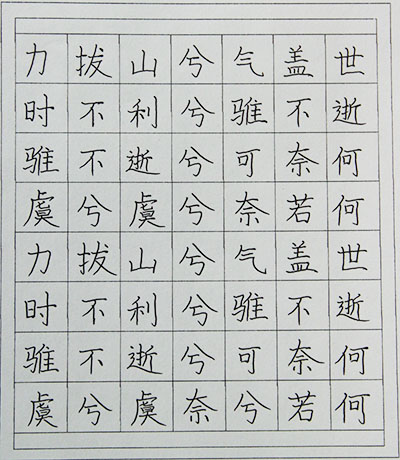 力拔山兮气盖世
时不利兮骓不逝
骓不逝兮可奈何
虞兮虞兮奈若何
力拔山兮气盖世
时不利兮骓不逝
骓不逝兮可奈何
虞兮虞奈兮若何